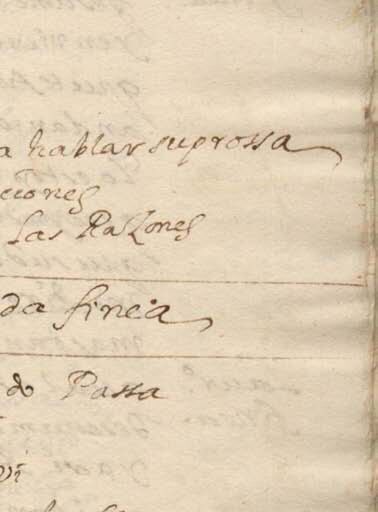 a hablar suprossa
ciones
las Razones
da finea
do Passa